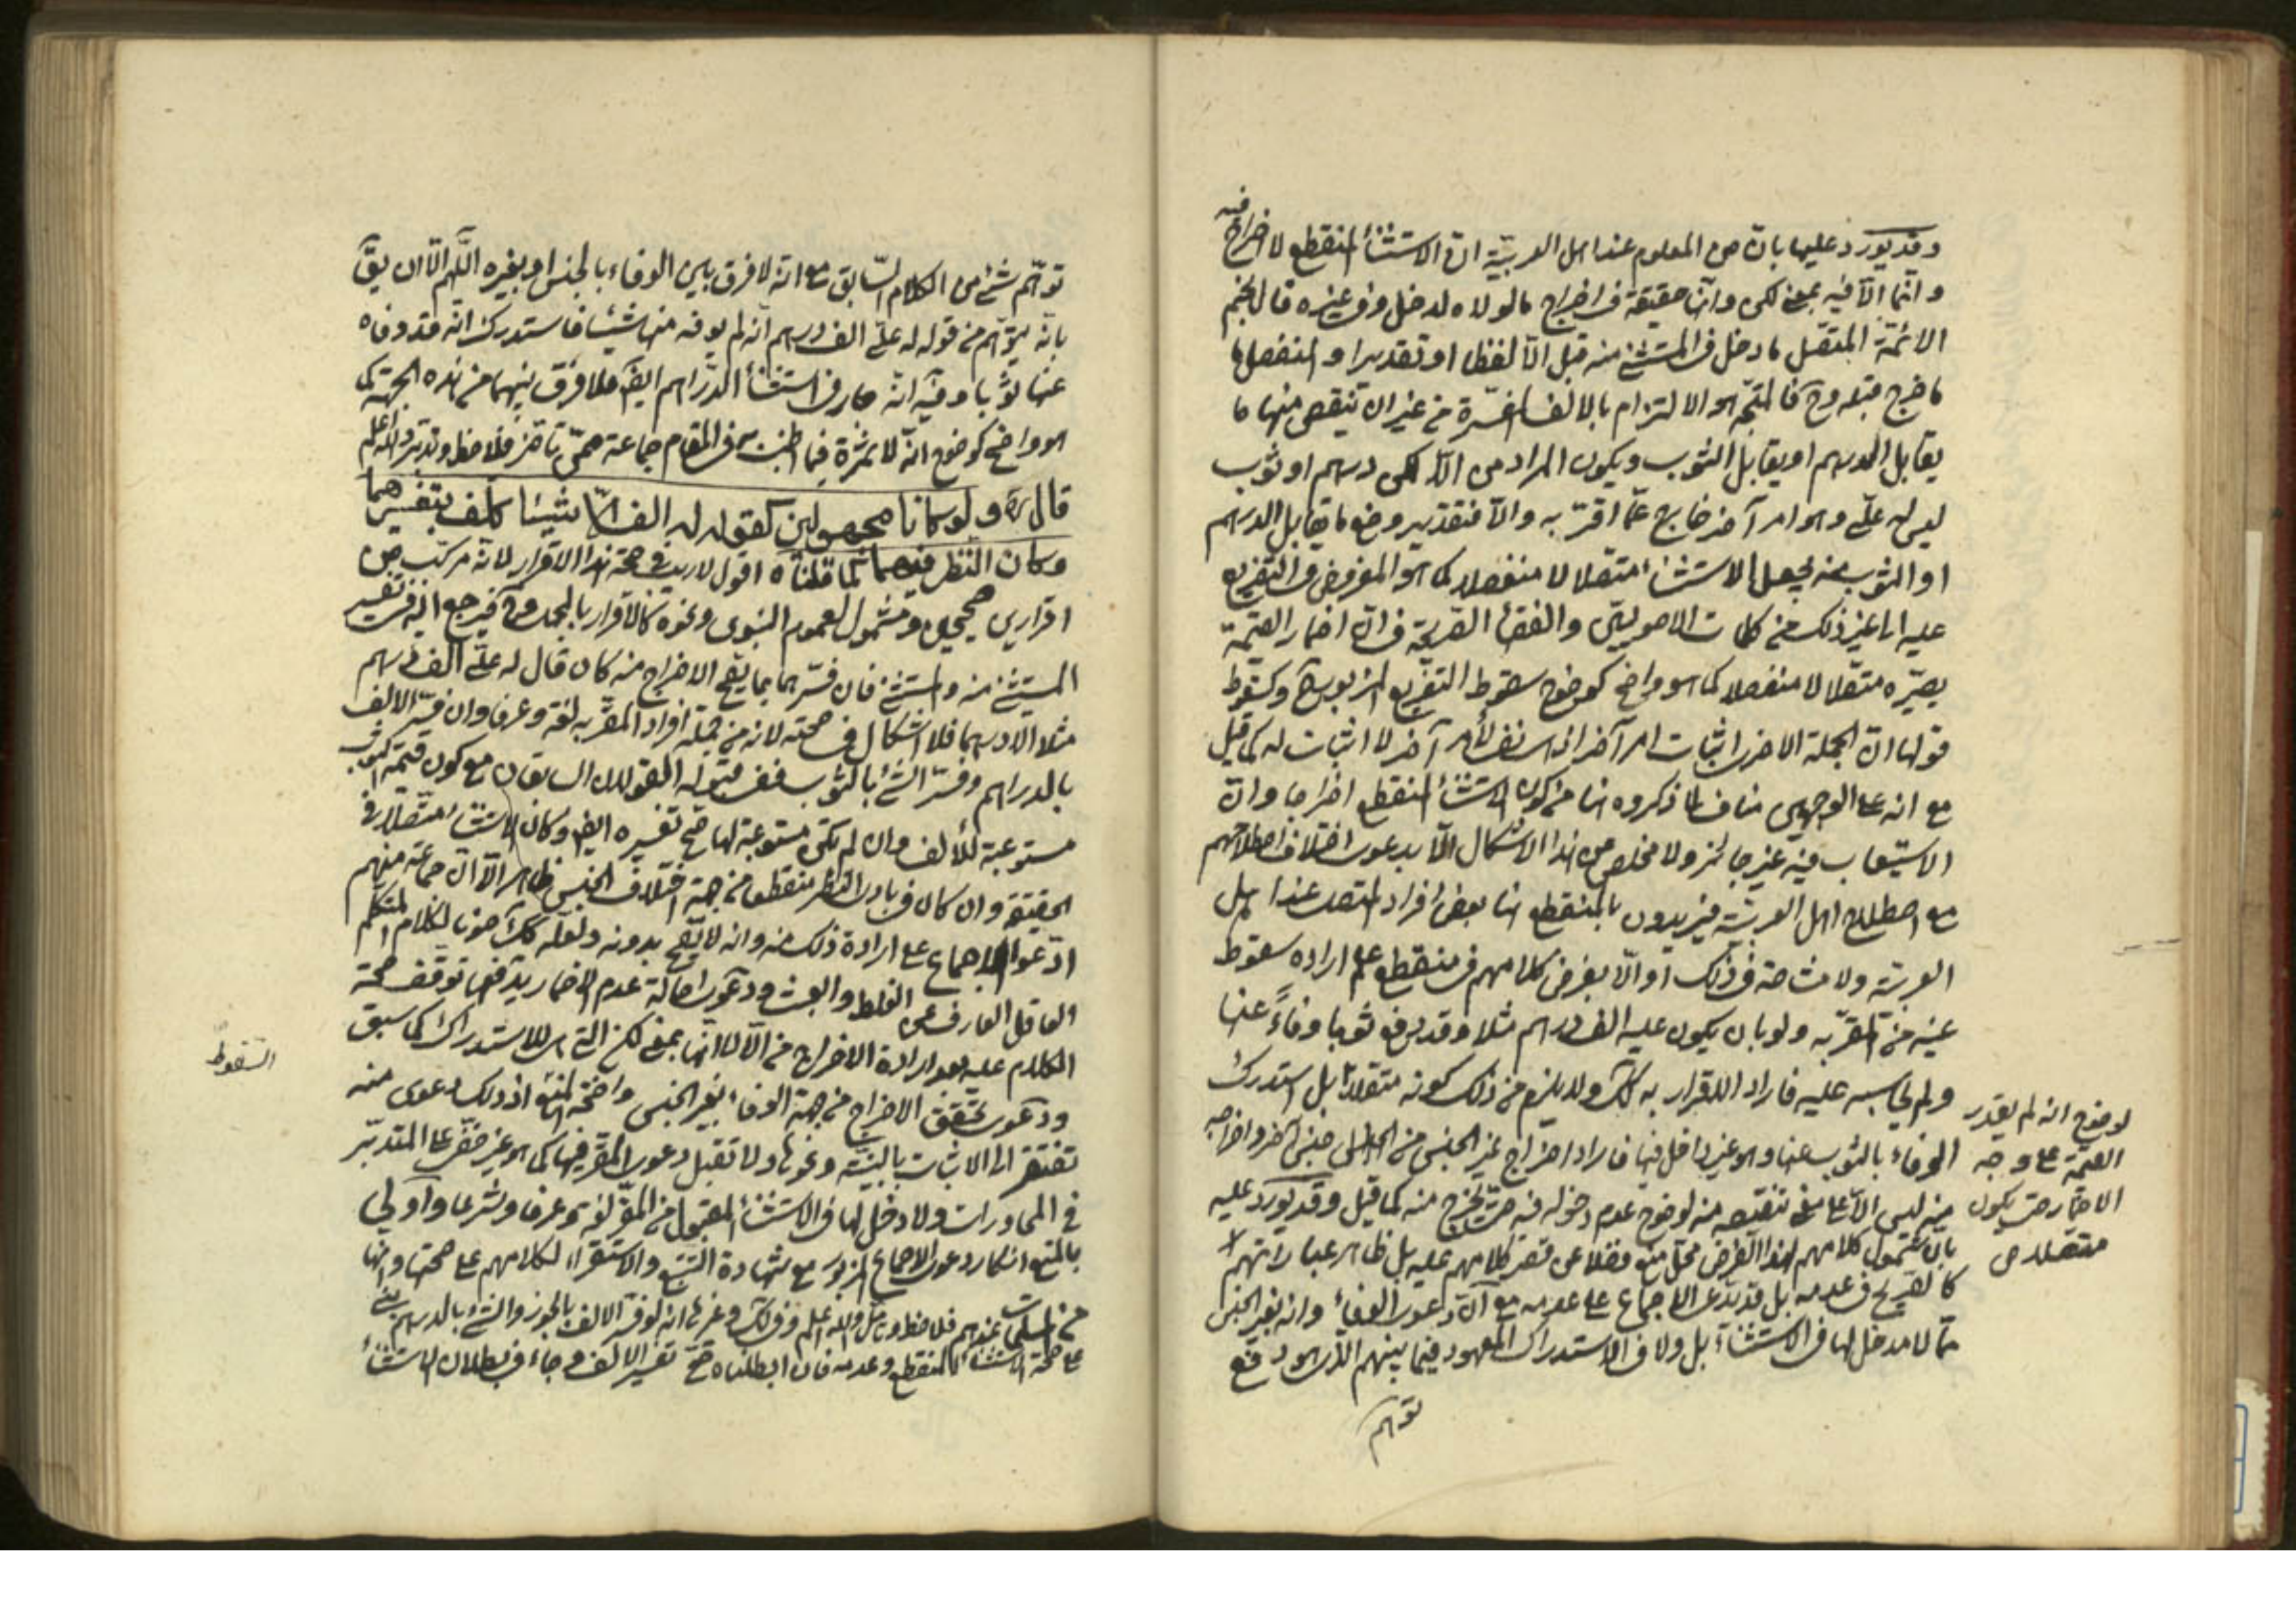 وقد يورد عليها بانّ من المعلوم عند اهل العربيّة انّ الاستثناء المنقطع لا اخراج فيه
وانّما الّا فيه بمعنى لكن وانّها حقيقة في اخراج ما لولاه لدخل وفي غيره قال نجم
الائمّة المتّصل ما دخل في المستثنى منه قبل الّا لفظا او تقديرا والمنفصل ما
ما خرج قبله وح فالمتجّه هو الالتزام بالالف من غير ان ينقص منها ما
يقابل الدرهم او يقابل الثوب ويكون المراد من الّا لكن درهم او ثوب
ليس له علىّ وهو امر آخر خارج عمّا اقرّ به والّا فتقدير وضع ما يقابل الدرهم
او الثوب منه يجعل الاستثناء متّصلا لا منفصلا كما هو المفروض في التفريع
عليه الى غير ذلك من كلمات الاصوليين والفقهاء الصريحة في انّ اضمار القيمة
يصيّره متّصلا لا منفصلا كما هو واضح كوضوح سقوط التفريع المزبور وكسقوط
قولها انّ الجملة الاخرى اثبات امر آخر نفى لأمر آخر لا اثبات له كما قيل
مع انه على الوجهين مناف لما ذكروه هنا من كون الاستثناء المنقطع اخراجا وانّ
الاستيعاب فيه غير جائز ولا مخلص من هذا الاشكال الّا بدعوى اختلاف اصطلاحهم
مع اصطلاح اهل العربيّة فيريدون بالمنقطع هنا بعض افراد المتصل عند اهل
العربيّة ولا مشاحة في ذلك او الّا بفرض كلامهم في منقطع علم اراده سقوط
عينه من المقرّ به ولو بان يكون عليه الف درهم مثلا وقد دفع ثوبا وفاءً عنها
ولم يحاسبه عليه فاراد الاقرار به كك ولا يلزم من ذلك كونه متّصلا بل استدرك
لوضوح انه لم يقدر
الوفاء بالثوب عنها وهو غير داخل فيها فاراد اخراج غير الجنس من جنس آخر واخراجه
القيمة على وجه
منه ليس الّا على معنى تنقيصه منه لوضوح عدم دخوله فيه حتى يخرج منه كما قيل وقد يورد عليه
الاضمار حتى يكون
متصلا ص
بانّ شمول كلامهم لهذا الفرض محلّ منع فضلا عن قصر كلامهم عليه بل ظاهر عباراتهم
كالصريح في عدمه بل قد يدّعى الاجماع على عدمه مع انّ دعوى الوفاء وانه بغير الجنس
ممّا لا مدخل لها في الاستثناء بل ولا في الاستدراك المعهود فيما بينهم الّذى هو دفع
توهم
توهّم شئ من الكلام السّابق مع انّه لا فرق بين الوفاء بالجنس او بغيره اللّهم الّا ان يقّ
بانّه يتوهّم من قوله له علىّ الف درهم انّه لم يوفه منها شيئا فاستدرك انّه قد وفاه
عنها ثوبا وفيه انّه جار في استثناء الدّراهم ايضا فلا فرق بينهما من هذه الجهة كما
هو واضح كوضوح انّه لا ثمرة فيما اطنب به في المقام جماعة ممّن تأخر فلاحظ وتدبّر والله اعلم
قال ره ولو كانا مجهولين كقوله له الف الّا شيئا كلّف بتفسيرهما
وكان النّظر فيهما كما قلناه اقول لا ريب في صحة هذا الاقرار لانّه مركّب من
اقرارين صحيحين ومشمول لعموم النبوى ونحوه كالاقرار بالمجمل وح فيرجع اليه في تفسير
المستثنى منه والمستثنى فان فسّرهما بما يصحّ الاخراج منه كان قال له علىّ الف درهم
مثلا الّا درهما فلا اشكال في صحته لانه من جملة افراد المقرّ به لغة وعرفا وان فسّر الالف
بالدراهم وفسّر الشئ بالثوب ففى قبوله القولان السابقان مع كون قيمة الثوب
مستوعبة للألف وان لم تكن مستوعبة لها صحّ تفسيره ايضا وكان الاستثناء متّصلا في
الحقيقة وان كان في بادى النظر منقطعا من جهة اختلاف الجنس ظاهرا الّا انّ جماعة منهم
ادّعوا الاجماع على ارادة ذلك منه وانه لا يصحّ بدونه ولعلّه كك صونا لكلام المتكلّم
العاقل العارف عن الغلط والعبث ودعوى اصالة عدم الاضمار يدفعها توقف صحة
الكلام عليه بعد ارادة الاخراج من الّا لا انّها بمعنى لكن التى هى للاستدراك كما سبق
السّقوط
ودعوى تحقق الاخراج من جهة الوفاء بغير الجنس واضحة المنع اذ ذلك دعوى منه
تفتقر الى الاثبات بالبيّنة ونحوها ولا تقبل دعوى المقرّ فيها كما هو غير خفىّ على المتدبّر
في المحاورات ولا دخل لها في الاستثناء المقبول من المقرّ لغة وعرفا وشرعا واولى
بالمنع انكار دعوى الاجماع المزبور مع شهادة التتبّع والاستقراء لكلامهم على صحتها وانها
من المسلّمات عندهم فلاحظ وتأمّل والله اعلم وفى لك وغيرها انه لو فسّر الالف بالجوز والشئ بالدرهم بنى
على صحّة الاستثناء المنقطع وعدمه فان ابطلناه صحّ تفسير الالف وجاء في بطلان الاستثناء